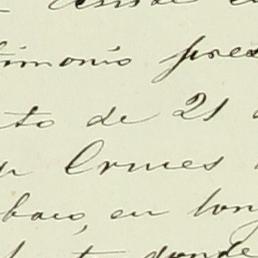 timonio pre
to de 21
Cruces
bao, en lon
donde